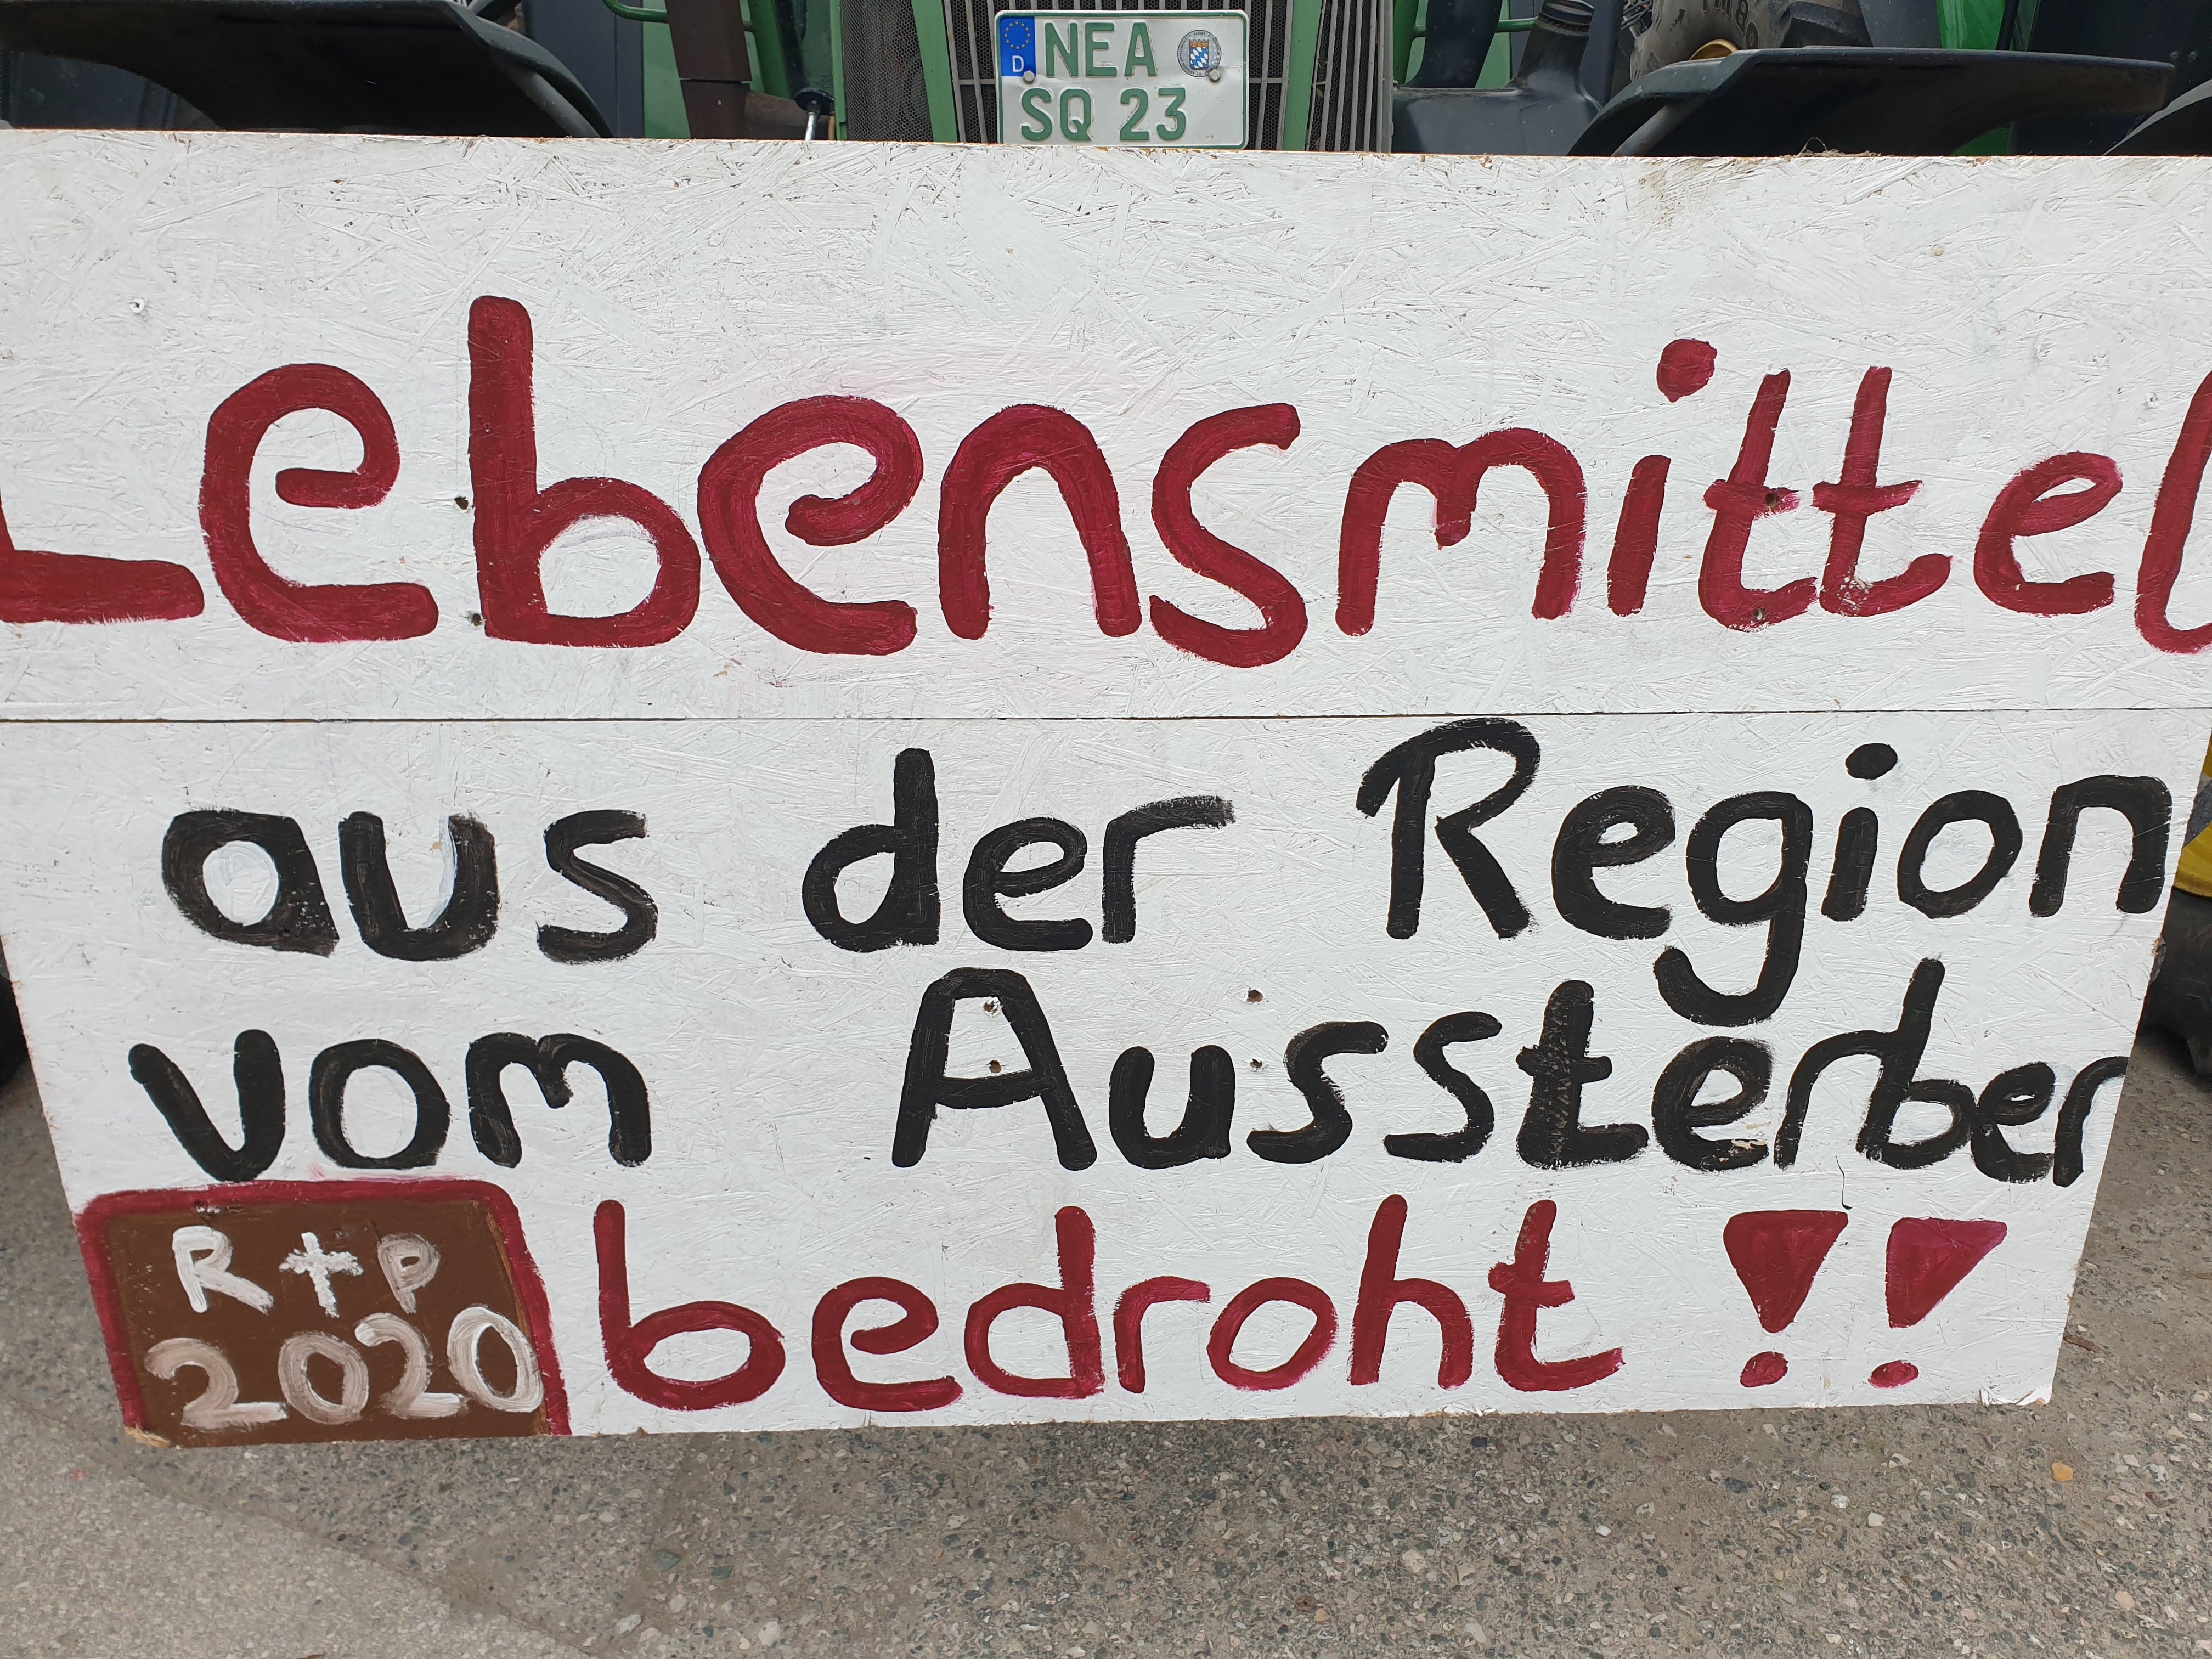 D NEA
SQ 23
Lebensmittel
aus der Region
vom Aussterben
bedroht !!
R✝P
2020